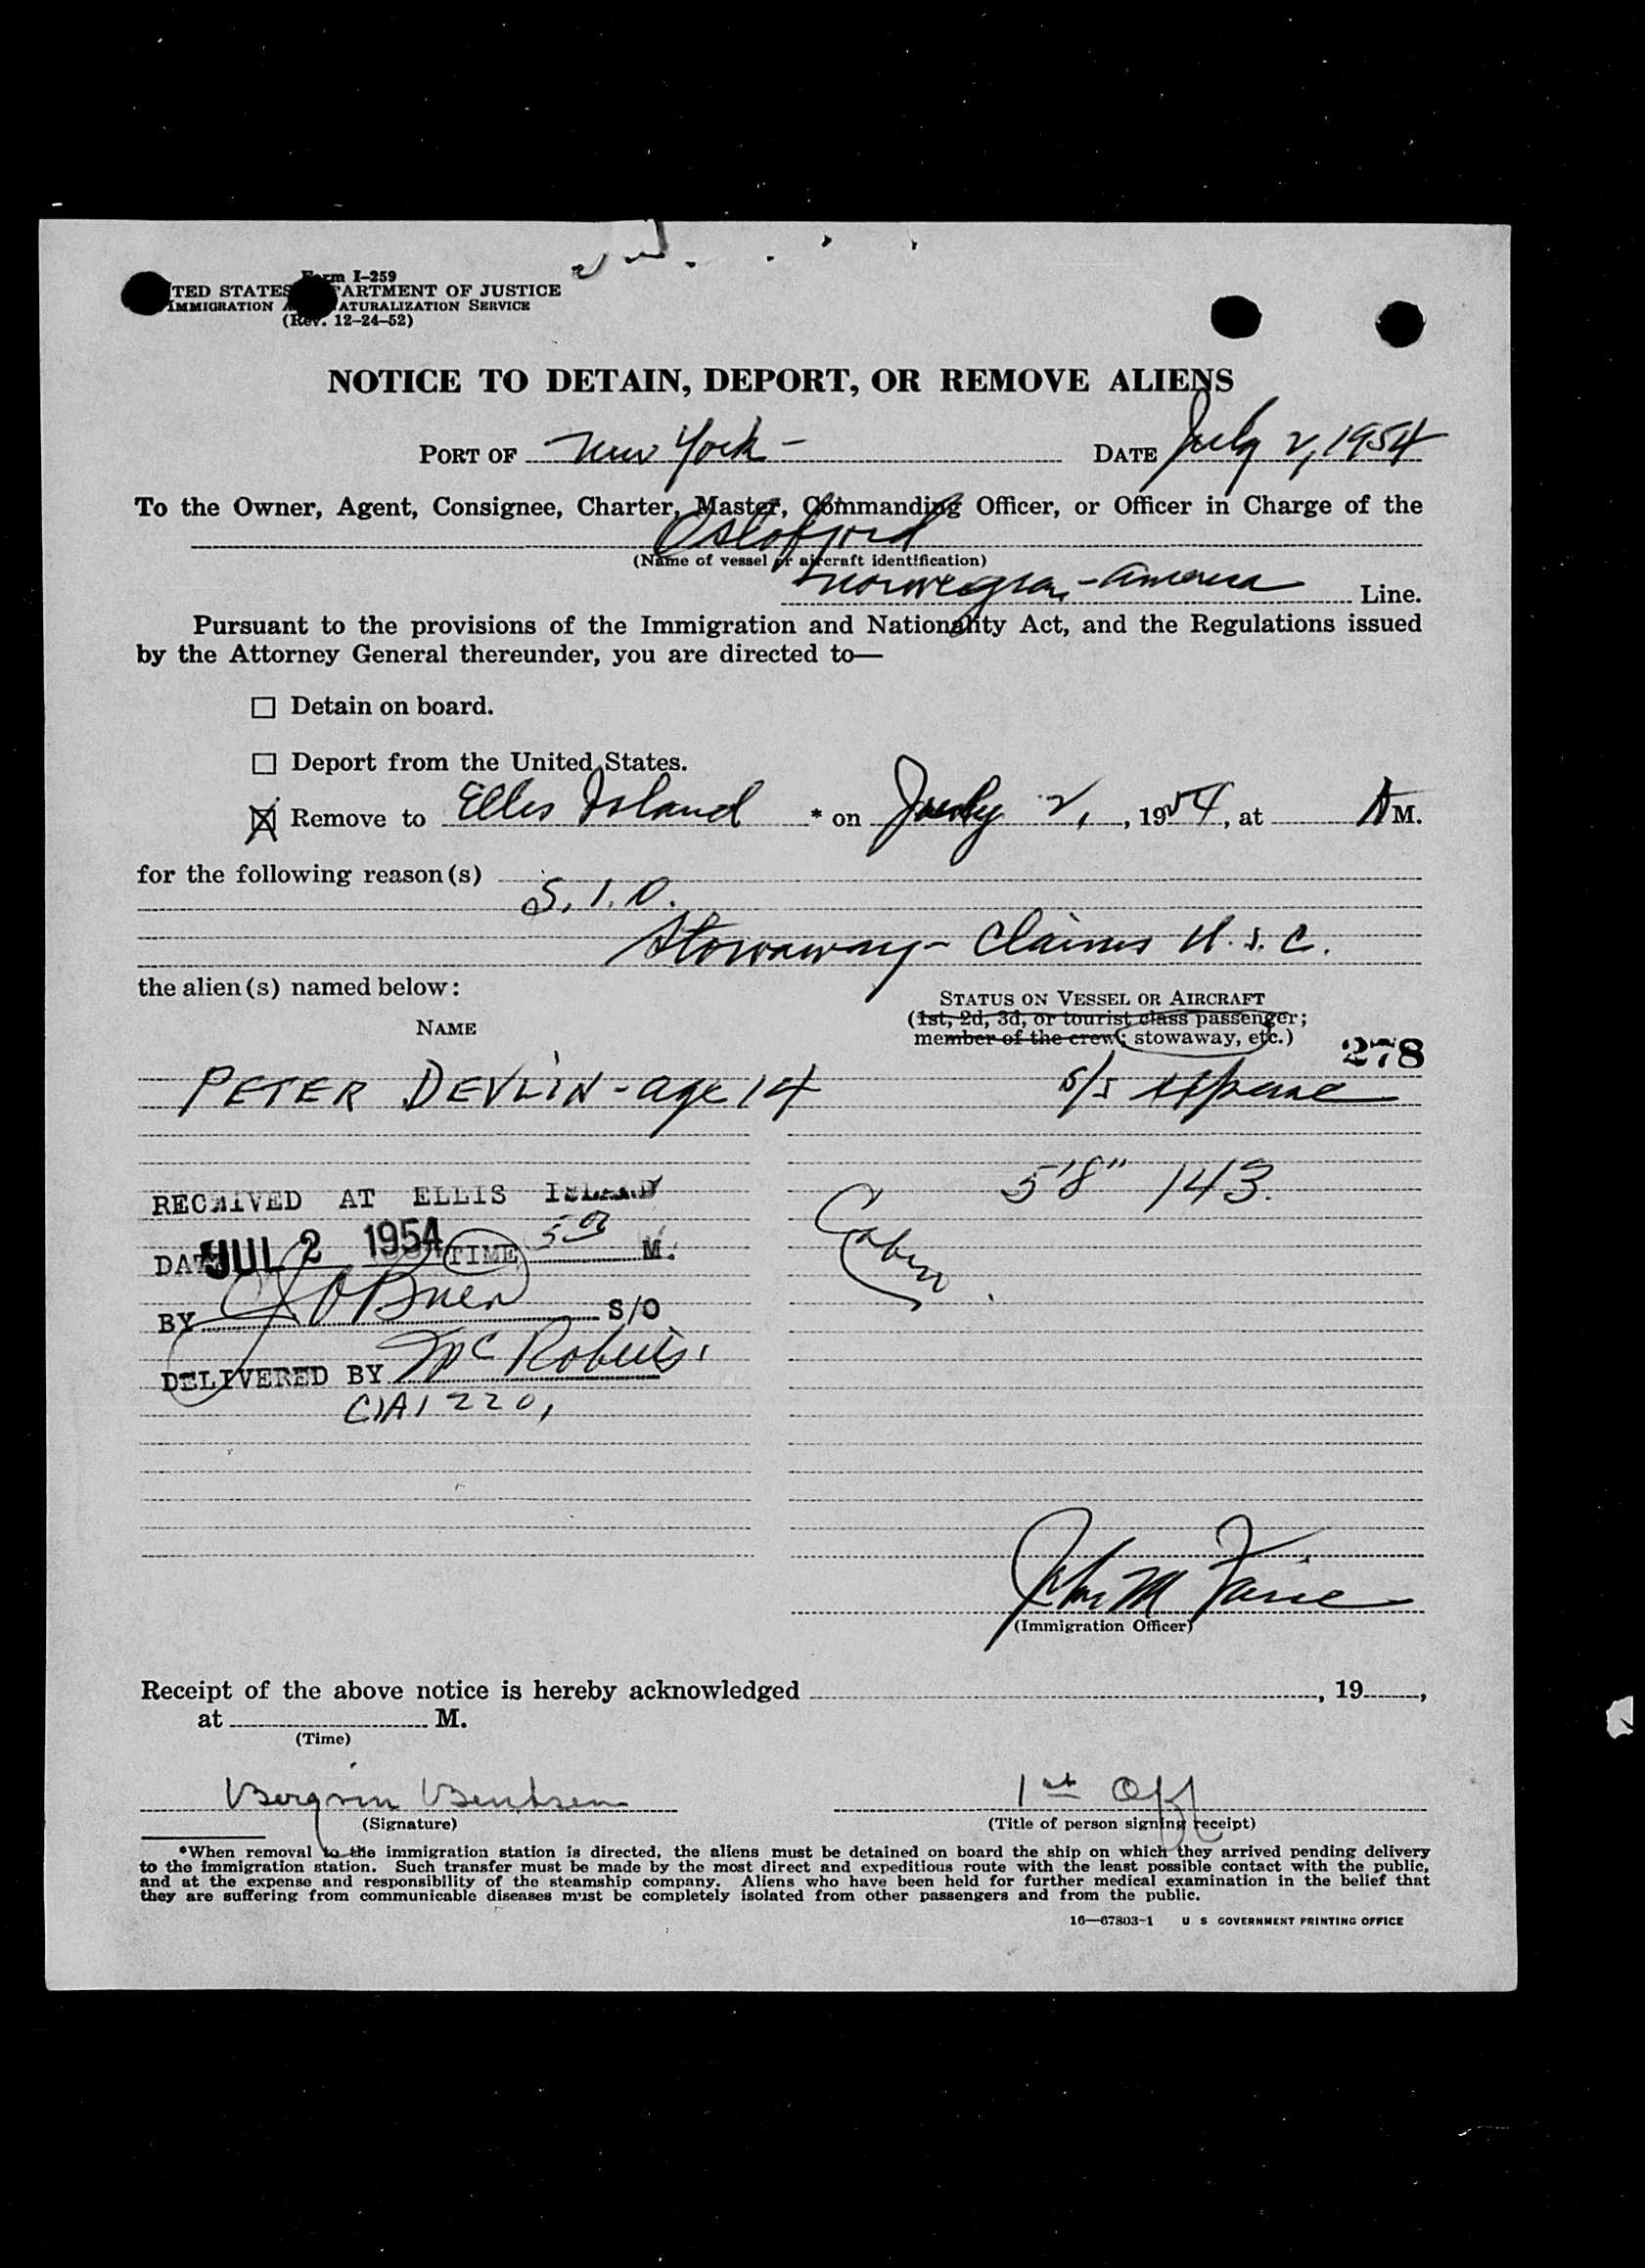 Form I-259
TED STATES ARTMENT OF JUSTICE
IMMIGRATION A ATURALIZATION SERVICE
(Rev. 12-24-52)
NOTICE TO DETAIN, DEPORT, OR REMOVE ALIENS
PORT OF New York - DATE July 2, 1954
To the Owner, Agent, Consignee, Charter, Master, Commanding Officer, or Officer in Charge of the
Oslofjord
(Name of vessel or aircraft identification)
Norwegian-America Line.
Pursuant to the provisions of the Immigration and Nationality Act, and the Regulations issued
by the Attorney General thereunder, you are directed to—
☐ Detain on board.
☐ Deport from the United States.
☒ Remove to Ellis Island * on July 2, , 1954, at A M.
for the following reason(s)
S. I. O.
Stowaway - Claims U.S.C.
the alien(s) named below:
STATUS ON VESSEL OR AIRCRAFT
NAME
(1st, 2d, 3d, or tourist class passenger;
member of the crew; stowaway, etc.)
278
PETER DEVLIN - age 14 s/s expense
5'8" 143.
RECEIVED AT ELLIS ISLAND
DATE JUL 2 1954 TIME 5 M.
BY O'Brien S/O
DELIVERED BY McRoberts
220
John M
(Immigration Officer)
Receipt of the above notice is hereby acknowledged , 19 ,
at M.
(Time)
Bentsen 1st Off
(Signature) (Title of person signing receipt)
*When removal to the immigration station is directed, the aliens must be detained on board the ship on which they arrived pending delivery
to the immigration station. Such transfer must be made by the most direct and expeditious route with the least possible contact with the public,
and at the expense and responsibility of the steamship company. Aliens who have been held for further medical examination in the belief that
they are suffering from communicable diseases must be completely isolated from other passengers and from the public.
16—67803-1 U S GOVERNMENT PRINTING OFFICE